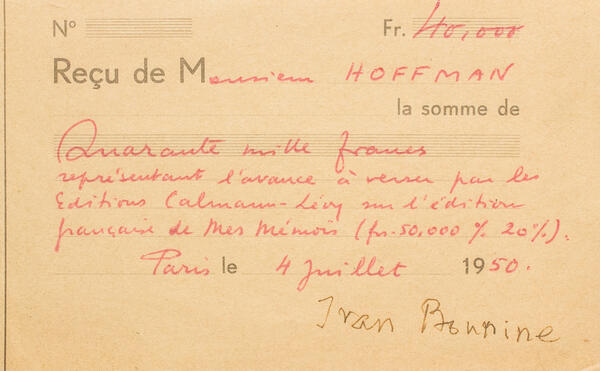 N° Fr. 40,000
Reçu de Monsieur HOFFMAN
la somme de
Quarante mille francs
représentant l'avance à verser par les
Editions Calmann-Lévy sur l'édition
française de Mes Mémoirs (frs. 50,000 % 20%).
Paris le 4 Juillet 1950.
Ivan Bounine